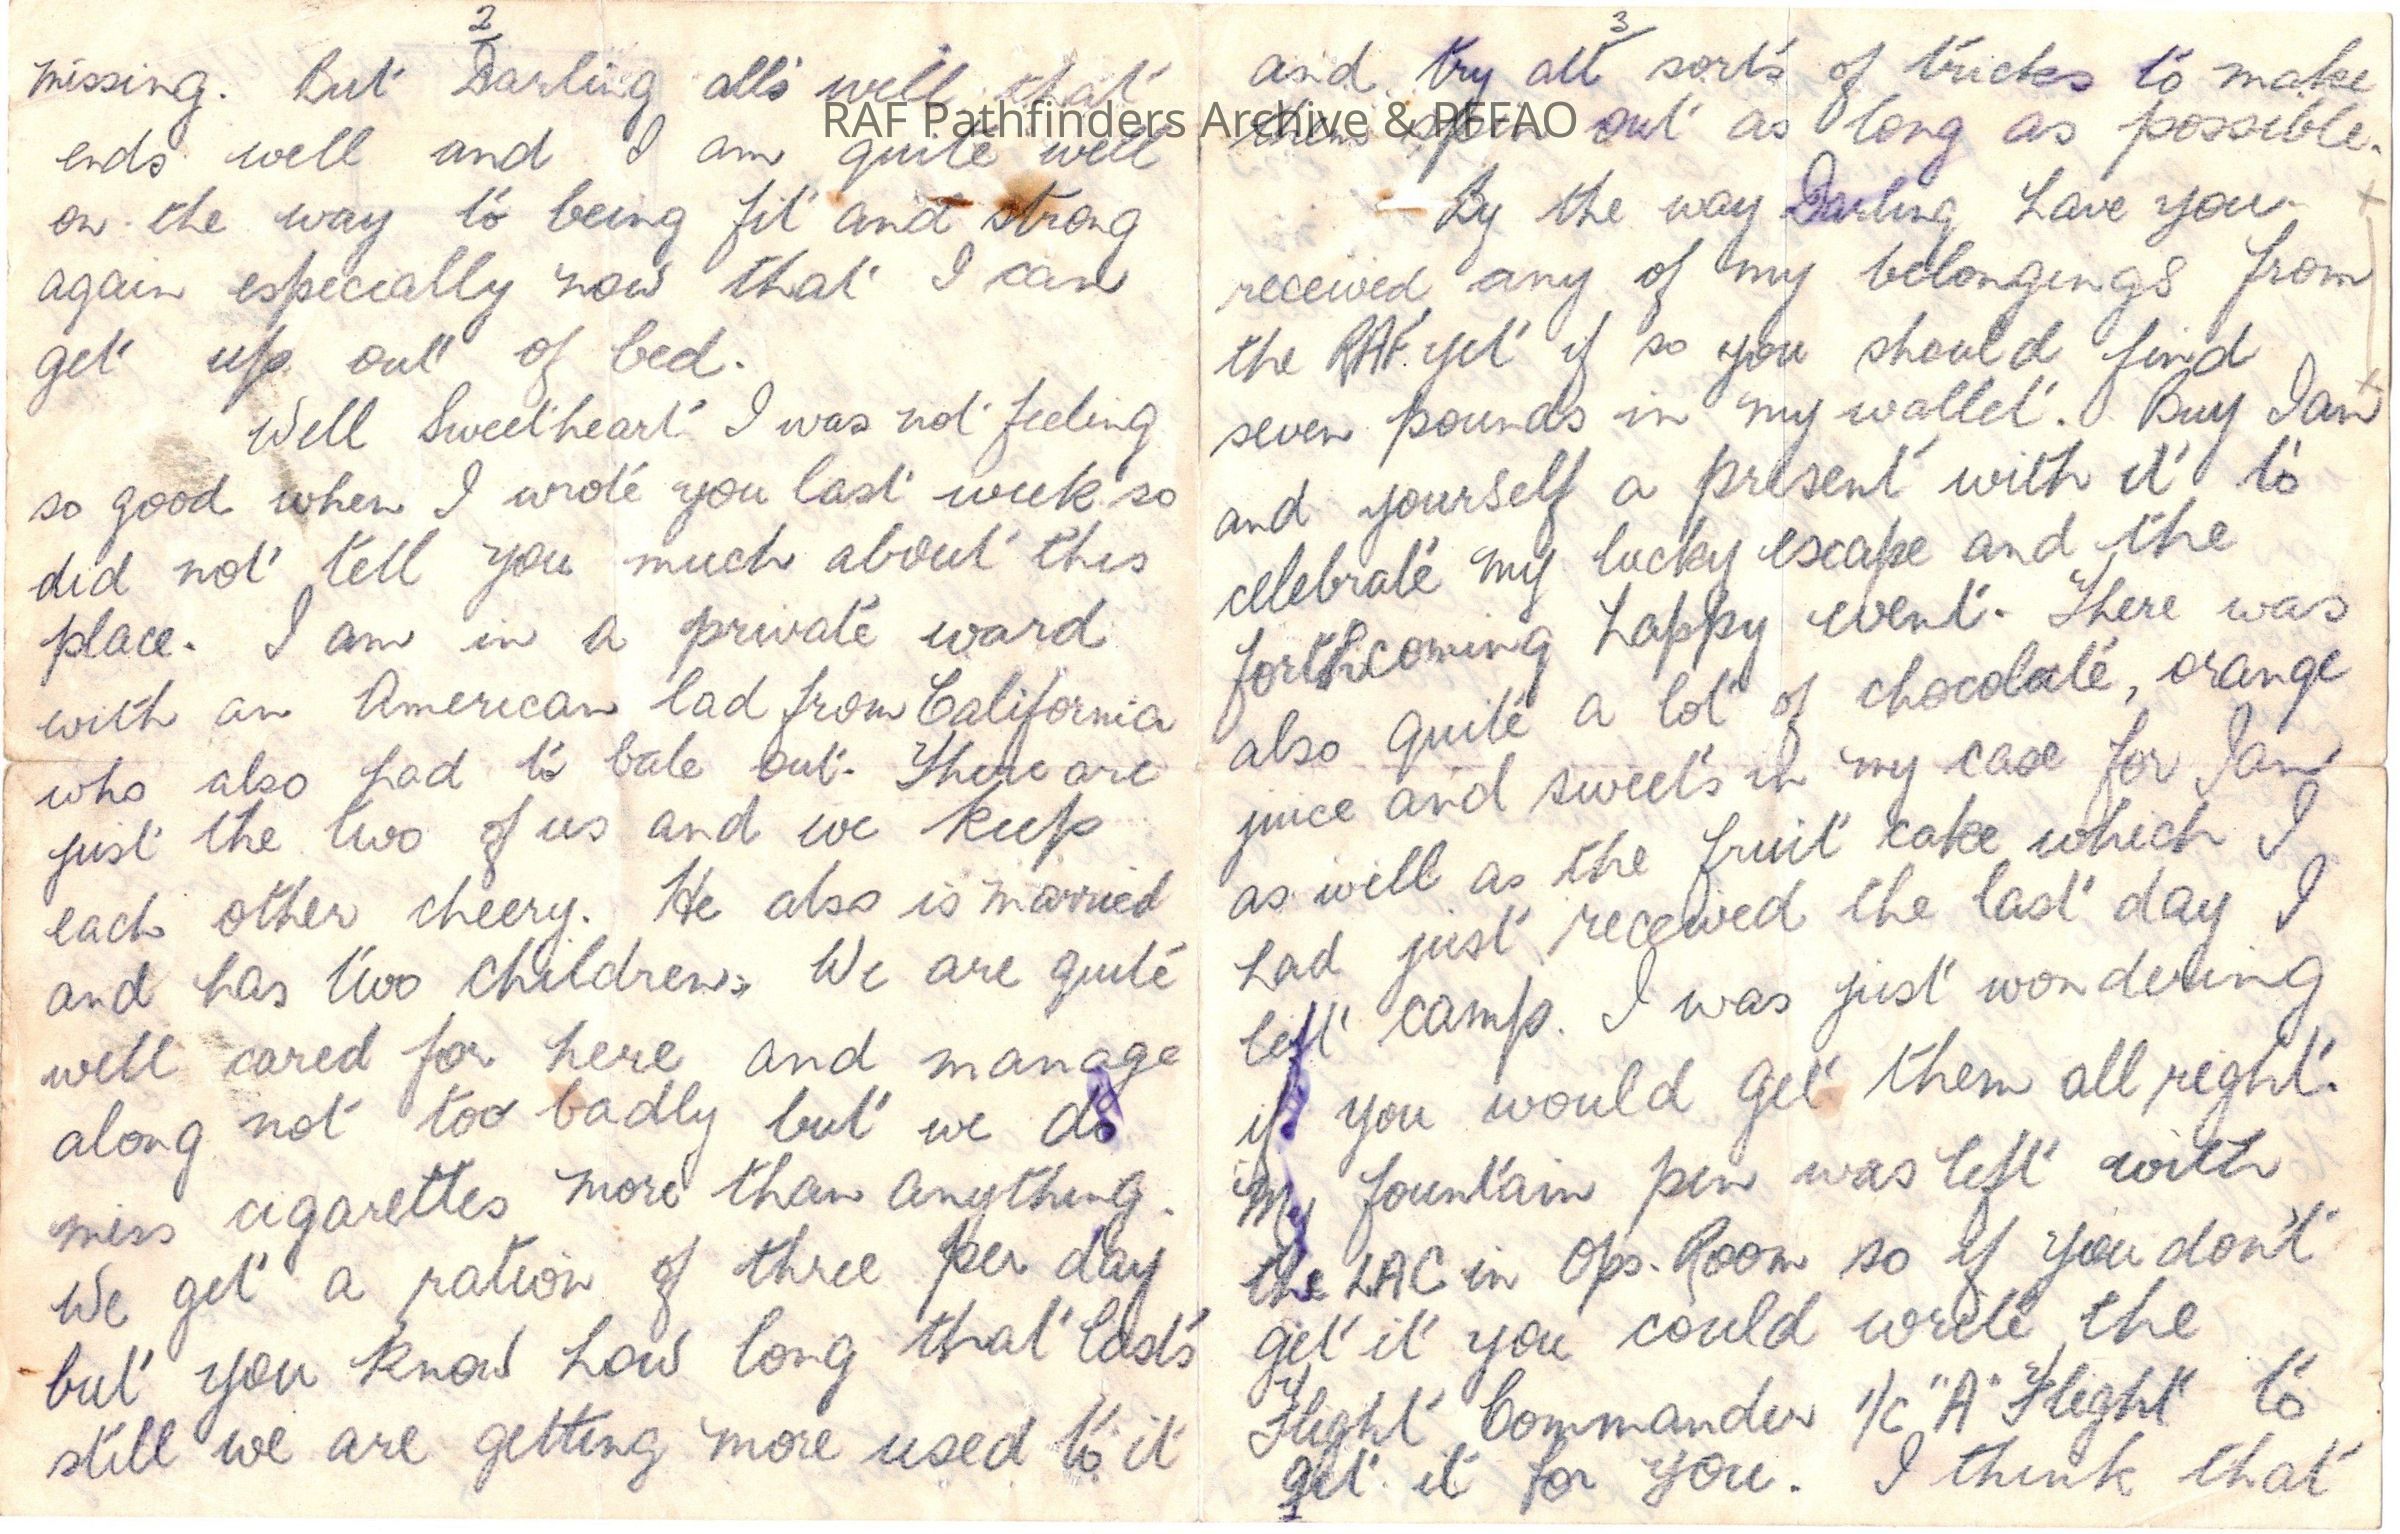 2
missing. But Darling all's well that
ends well and I am quite well
on the way to being fit and strong
again especially now that I can
get up out of bed.
Well Sweetheart I was not feeling
so good when I wrote you last week so
did not tell you much about this
place. I am in a private ward
with an American lad from California
who also had to bale out. There are
just the two of us and we keep
each other cheery. He also is married
and has two children. We are quite
well cared for here and manage
along not too badly but we do
miss cigarettes more than anything.
We get a ration of three per day
but you know how long that lasts
still we are getting more used to it
3
and try all sorts of tricks to make
them spin out as long as possible.
By the way Darling have you
received any of my belongings from
the RAF. yet if so you should find
seven pounds in my wallet. Buy Ian
and yourself a present with it to
celebrate my lucky escape and the
forthcoming happy event. There was
also quite a lot of chocolate, orange
juice and sweets in my case for Ian
as well as the fruit cake which I
had just received the last day I
left camp. I was just wondering
if you would get them all right.
My fountain pen was left with
the LAC in Ops. Room so if you don't
get it you could write the
Flight Commander i/c "A" Flight to
get it for you. I think that
RAF Pathfinders Archive & PFFAO